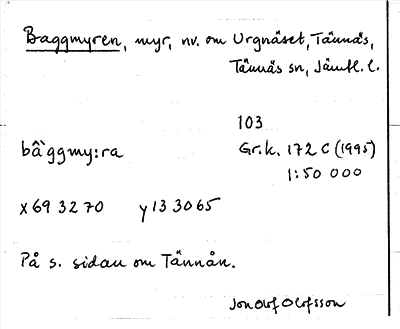 Baggmyren, myr, nv. om Urgnäset, Tännäs,
Tännäs sn, Jämtl. l.
103
bàggmy:ra
Gr.k. 172 C (1995)
1:50 000
x 69 32 70 y 13 30 65
På s. sidan om Tännån.
Jon Olof Olofsson